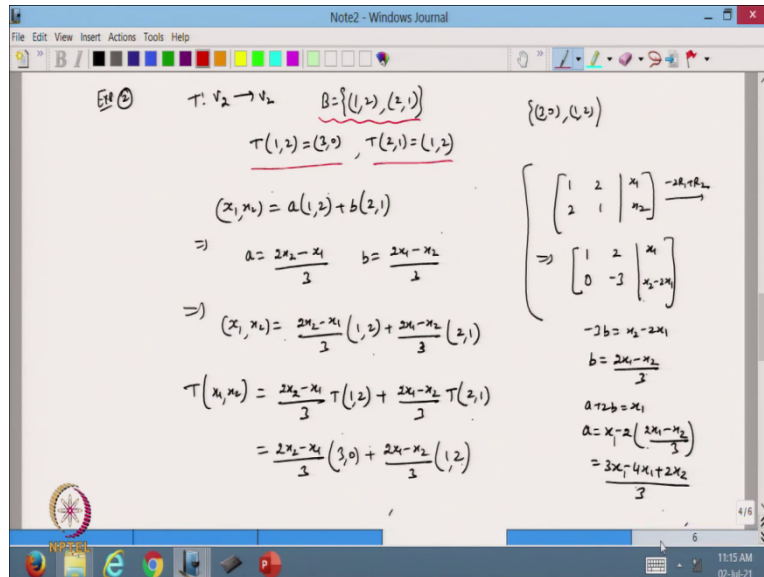 Note2 - Windows Journal
File Edit View Insert Actions Tools Help
Exp ② T: V₂ → V₂ B = {(1,2), (2,1)}
T(1,2) = (3,0) , T(2,1) = (1,2)
(x₁,x₂) = a(1,2) + b(2,1)
⇒ a = (2x₂ - x₁)/3 b = (2x₁ - x₂)/3
⇒ (x₁,x₂) = (2x₂ - x₁)/3 (1,2) + (2x₁ - x₂)/3 (2,1)
T(x₁,x₂) = (2x₂ - x₁)/3 T(1,2) + (2x₁ - x₂)/3 T(2,1)
= (2x₂ - x₁)/3 (3,0) + (2x₁ - x₂)/3 (1,2)
{(3,0), (1,2)}
[1 2 | x₁
2 1 | x₂] -2R₁+R₂ →
⇒ [1 2 | x₁
0 -3 | x₂-2x₁]
-3b = x₂ - 2x₁
b = (2x₁ - x₂)/3
a+2b = x₁
a = x₁ - 2((2x₁ - x₂)/3)
= (3x₁ - 4x₁ + 2x₂)/3
NPTEL
4/6
6
11:15 AM
02-Jul-21